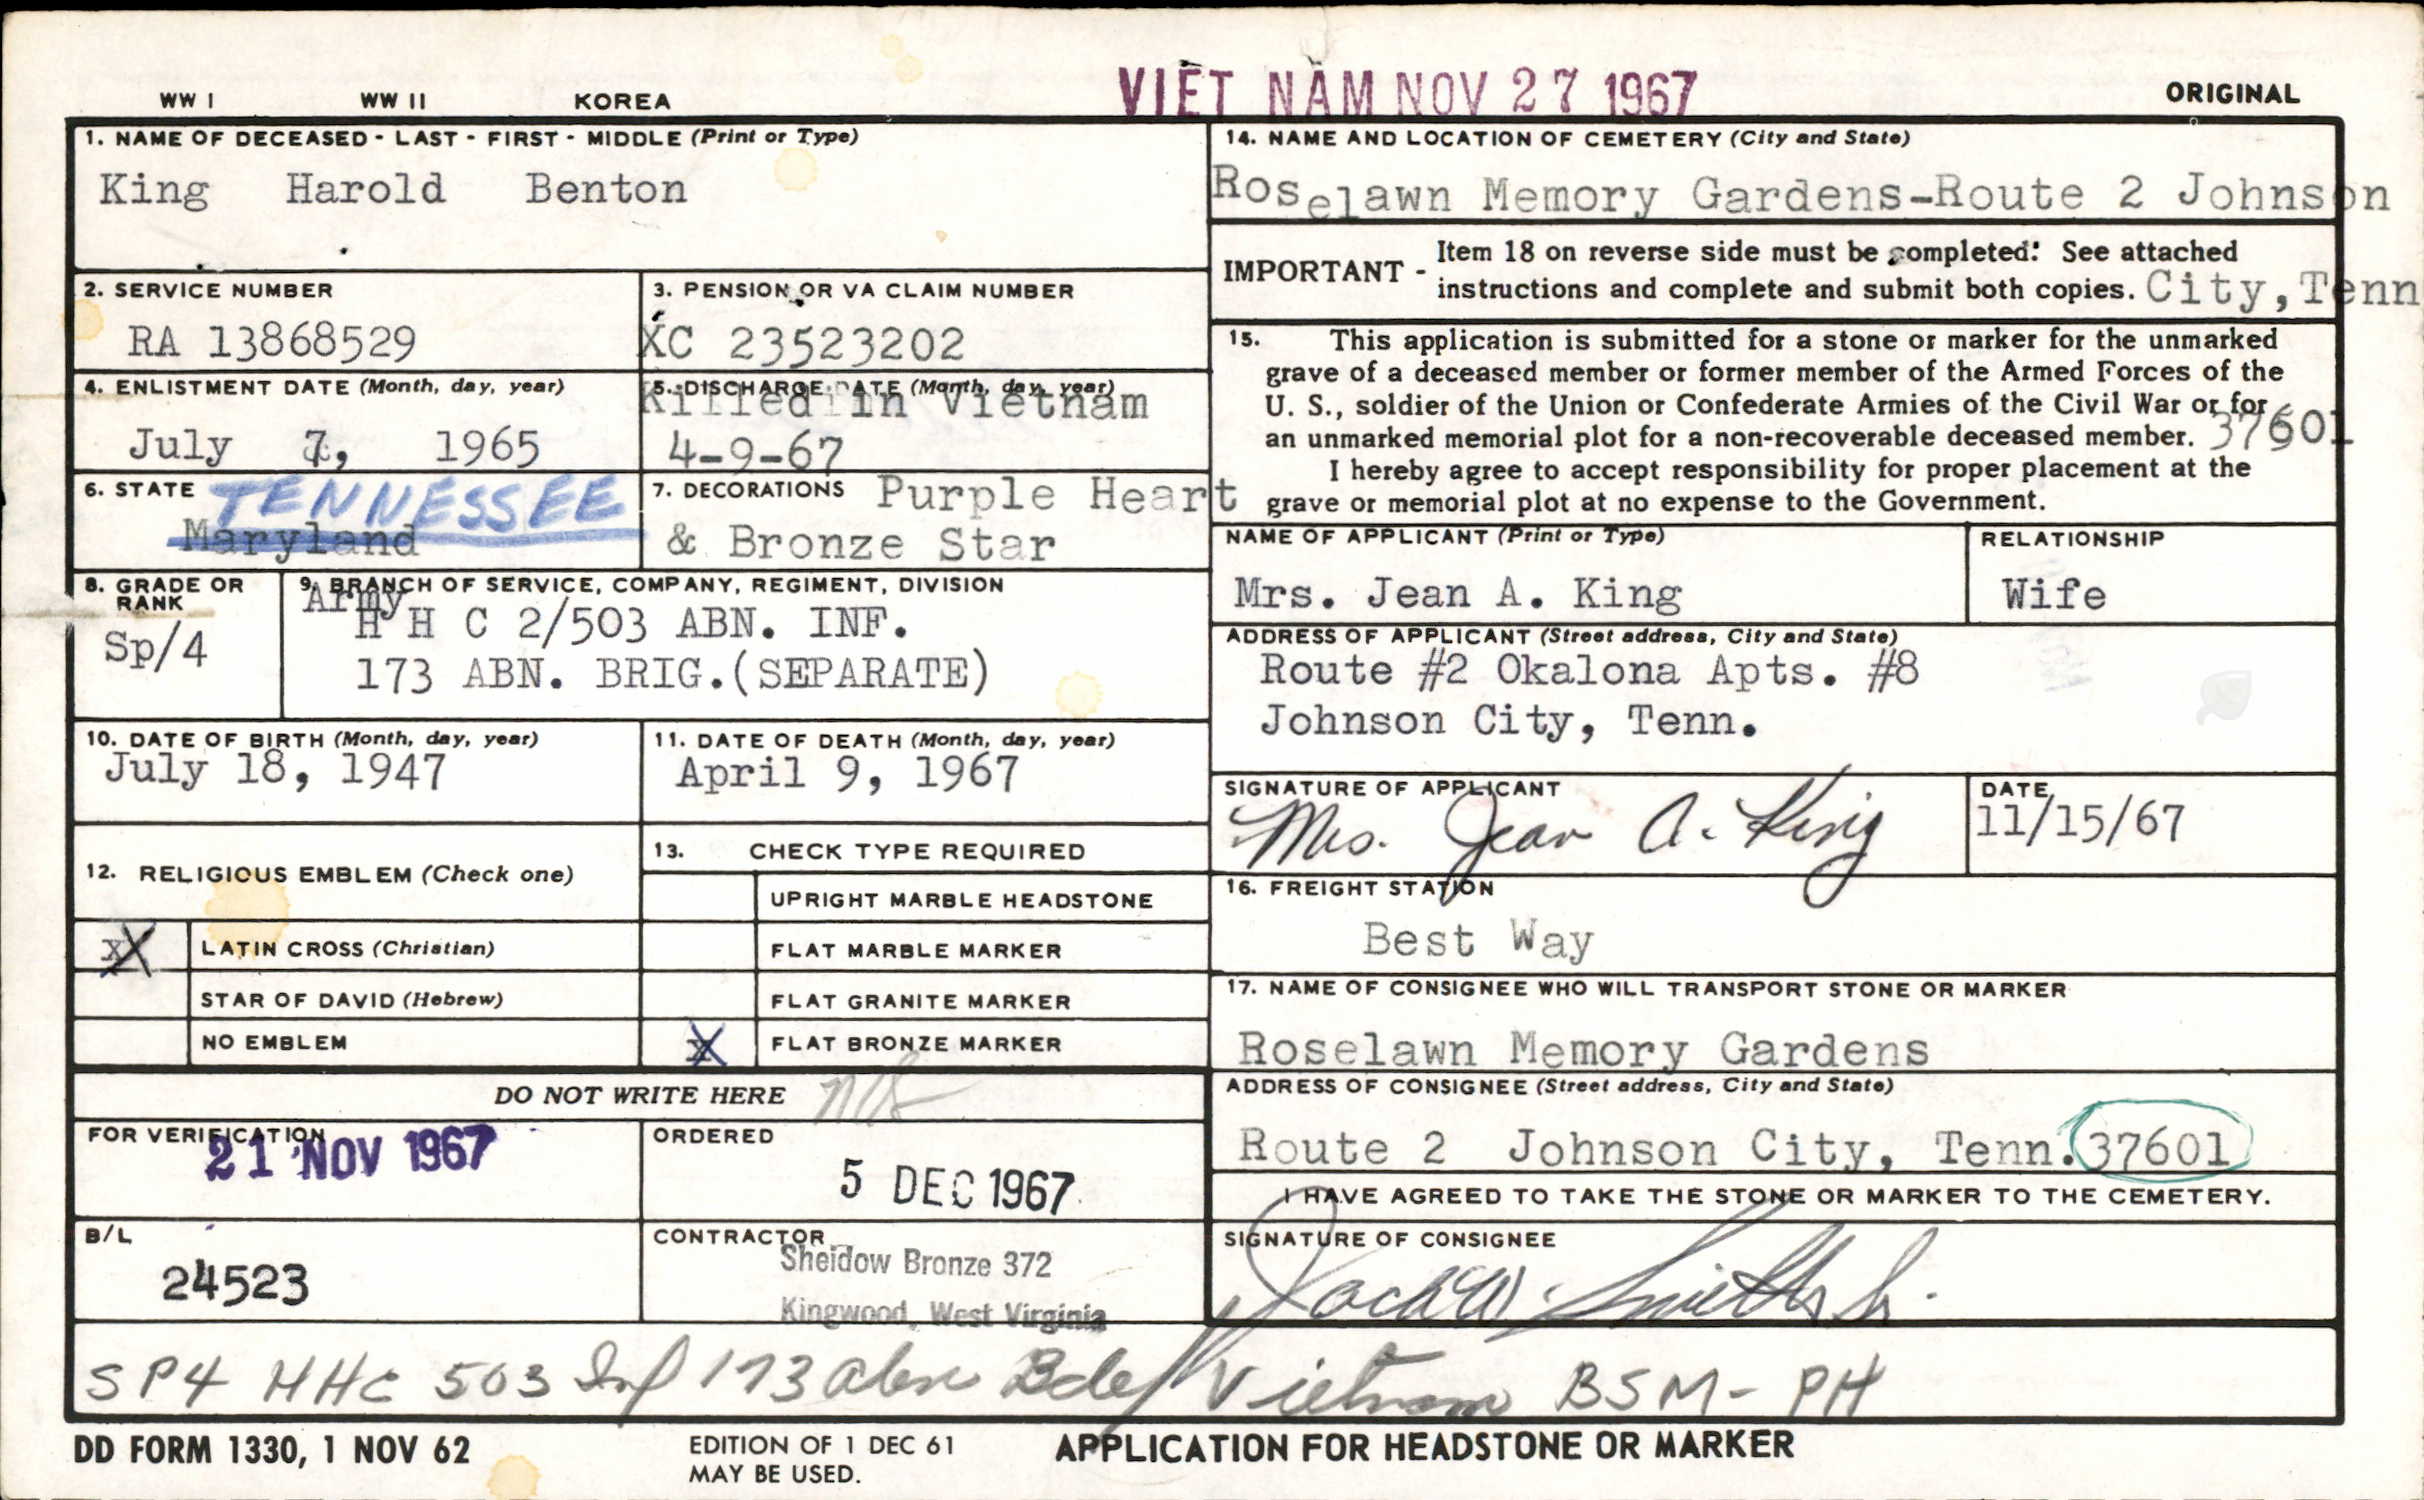 WW I WW II KOREA VIET NAM NOV 27 1967 ORIGINAL
1. NAME OF DECEASED - LAST - FIRST - MIDDLE (Print or Type)
King Harold Benton
2. SERVICE NUMBER
RA 13868529
3. PENSION OR VA CLAIM NUMBER
XC 23523202
4. ENLISTMENT DATE (Month, day, year)
July 7, 1965
5. DISCHARGE DATE (Month, day, year)
Killed in Vietnam
4-9-67
6. STATE TENNESSEE
Maryland
7. DECORATIONS Purple Heart
& Bronze Star
8. GRADE OR
RANK
Sp/4
9. BRANCH OF SERVICE, COMPANY, REGIMENT, DIVISION
Army
H H C 2/503 ABN. INF.
173 ABN. BRIG.(SEPARATE)
10. DATE OF BIRTH (Month, day, year)
July 18, 1947
11. DATE OF DEATH (Month, day, year)
April 9, 1967
12. RELIGIOUS EMBLEM (Check one)
X LATIN CROSS (Christian)
STAR OF DAVID (Hebrew)
NO EMBLEM
13. CHECK TYPE REQUIRED
UPRIGHT MARBLE HEADSTONE
FLAT MARBLE MARKER
FLAT GRANITE MARKER
X FLAT BRONZE MARKER
DO NOT WRITE HERE
FOR VERIFICATION
21 NOV 1967
ORDERED
5 DEC 1967
B/L
24523
CONTRACTOR
Sheidow Bronze 372
Kingwood, West Virginia
14. NAME AND LOCATION OF CEMETERY (City and State)
Roselawn Memory Gardens-Route 2 Johnson
IMPORTANT - Item 18 on reverse side must be completed. See attached
instructions and complete and submit both copies. City, Tenn
15. This application is submitted for a stone or marker for the unmarked
grave of a deceased member or former member of the Armed Forces of the
U. S., soldier of the Union or Confederate Armies of the Civil War or for
an unmarked memorial plot for a non-recoverable deceased member. 37601
I hereby agree to accept responsibility for proper placement at the
grave or memorial plot at no expense to the Government.
NAME OF APPLICANT (Print or Type)
Mrs. Jean A. King
RELATIONSHIP
Wife
ADDRESS OF APPLICANT (Street address, City and State)
Route #2 Okalona Apts. #8
Johnson City, Tenn.
SIGNATURE OF APPLICANT
Mrs. Jean A. King
DATE
11/15/67
16. FREIGHT STATION
Best Way
17. NAME OF CONSIGNEE WHO WILL TRANSPORT STONE OR MARKER
Roselawn Memory Gardens
ADDRESS OF CONSIGNEE (Street address, City and State)
Route 2 Johnson City, Tenn. 37601
I HAVE AGREED TO TAKE THE STONE OR MARKER TO THE CEMETERY.
SIGNATURE OF CONSIGNEE
Jack W. Smith Sr.
SP4 HHC 503 Inf 173 Abn Bde Vietnam BSM- PH
DD FORM 1330, 1 NOV 62
EDITION OF 1 DEC 61
MAY BE USED.
APPLICATION FOR HEADSTONE OR MARKER